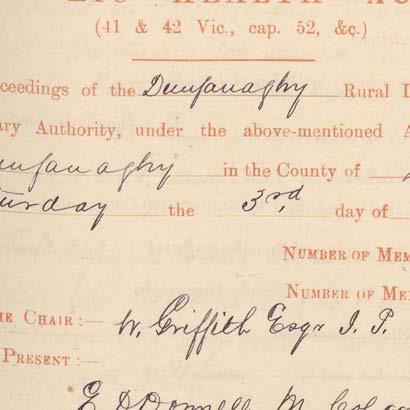 HEALTH
(41 & 42 Vic., cap. 52, &c.)
ceedings of the Dunfanaghy Rural D
ary Authority, under the above-mentioned A
unfanaghy in the County of
turday the 3rd day of
NUMBER OF MEM
NUMBER OF ME
HE CHAIR :— W. Griffith Esqr J. P.
PRESENT :—
E O'Donnell M